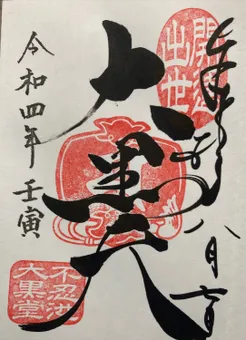 奉拝 八月
開運
出世
大黒天
令和四年 壬寅
不忍池
大黒堂